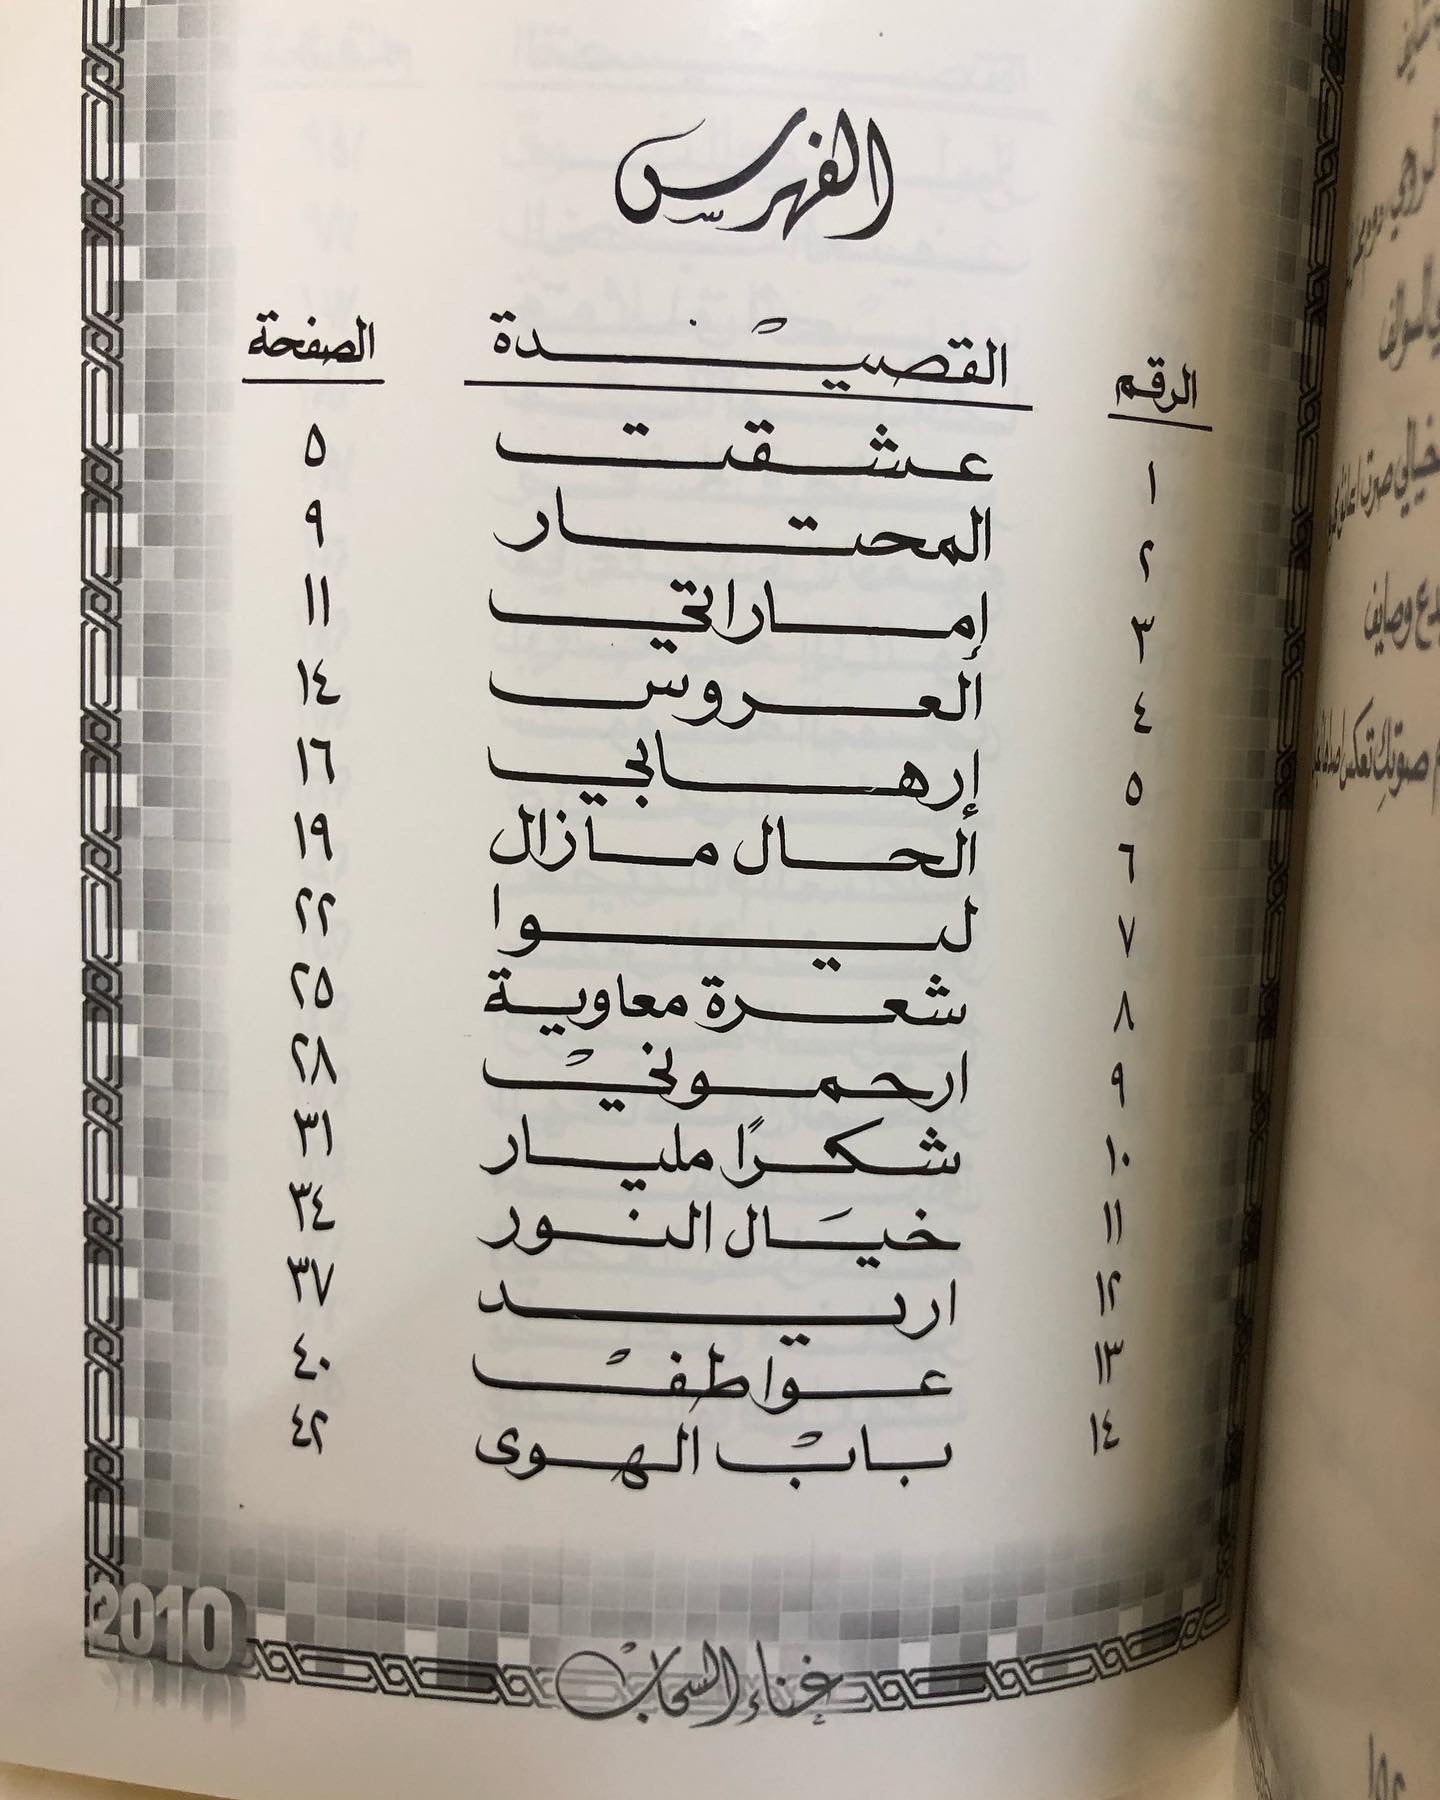 الفهرس
الرقم القصيدة الصفحة
١ عشقت ٥
٢ المحتار ٩
٣ إماراتي ١١
٤ العروس ١٤
٥ إرهابي ١٦
٦ الحال مازال ١٩
٧ ليوا ٢٢
٨ شعرة معاوية ٢٥
٩ ارحموني ٢٨
١٠ شكرًا مليار ٣١
١١ خيَال النور ٣٤
١٢ اريد ٣٧
١٣ عواطف ٤٠
١٤ باب الهوى ٤٢
2010
غناء السحاب